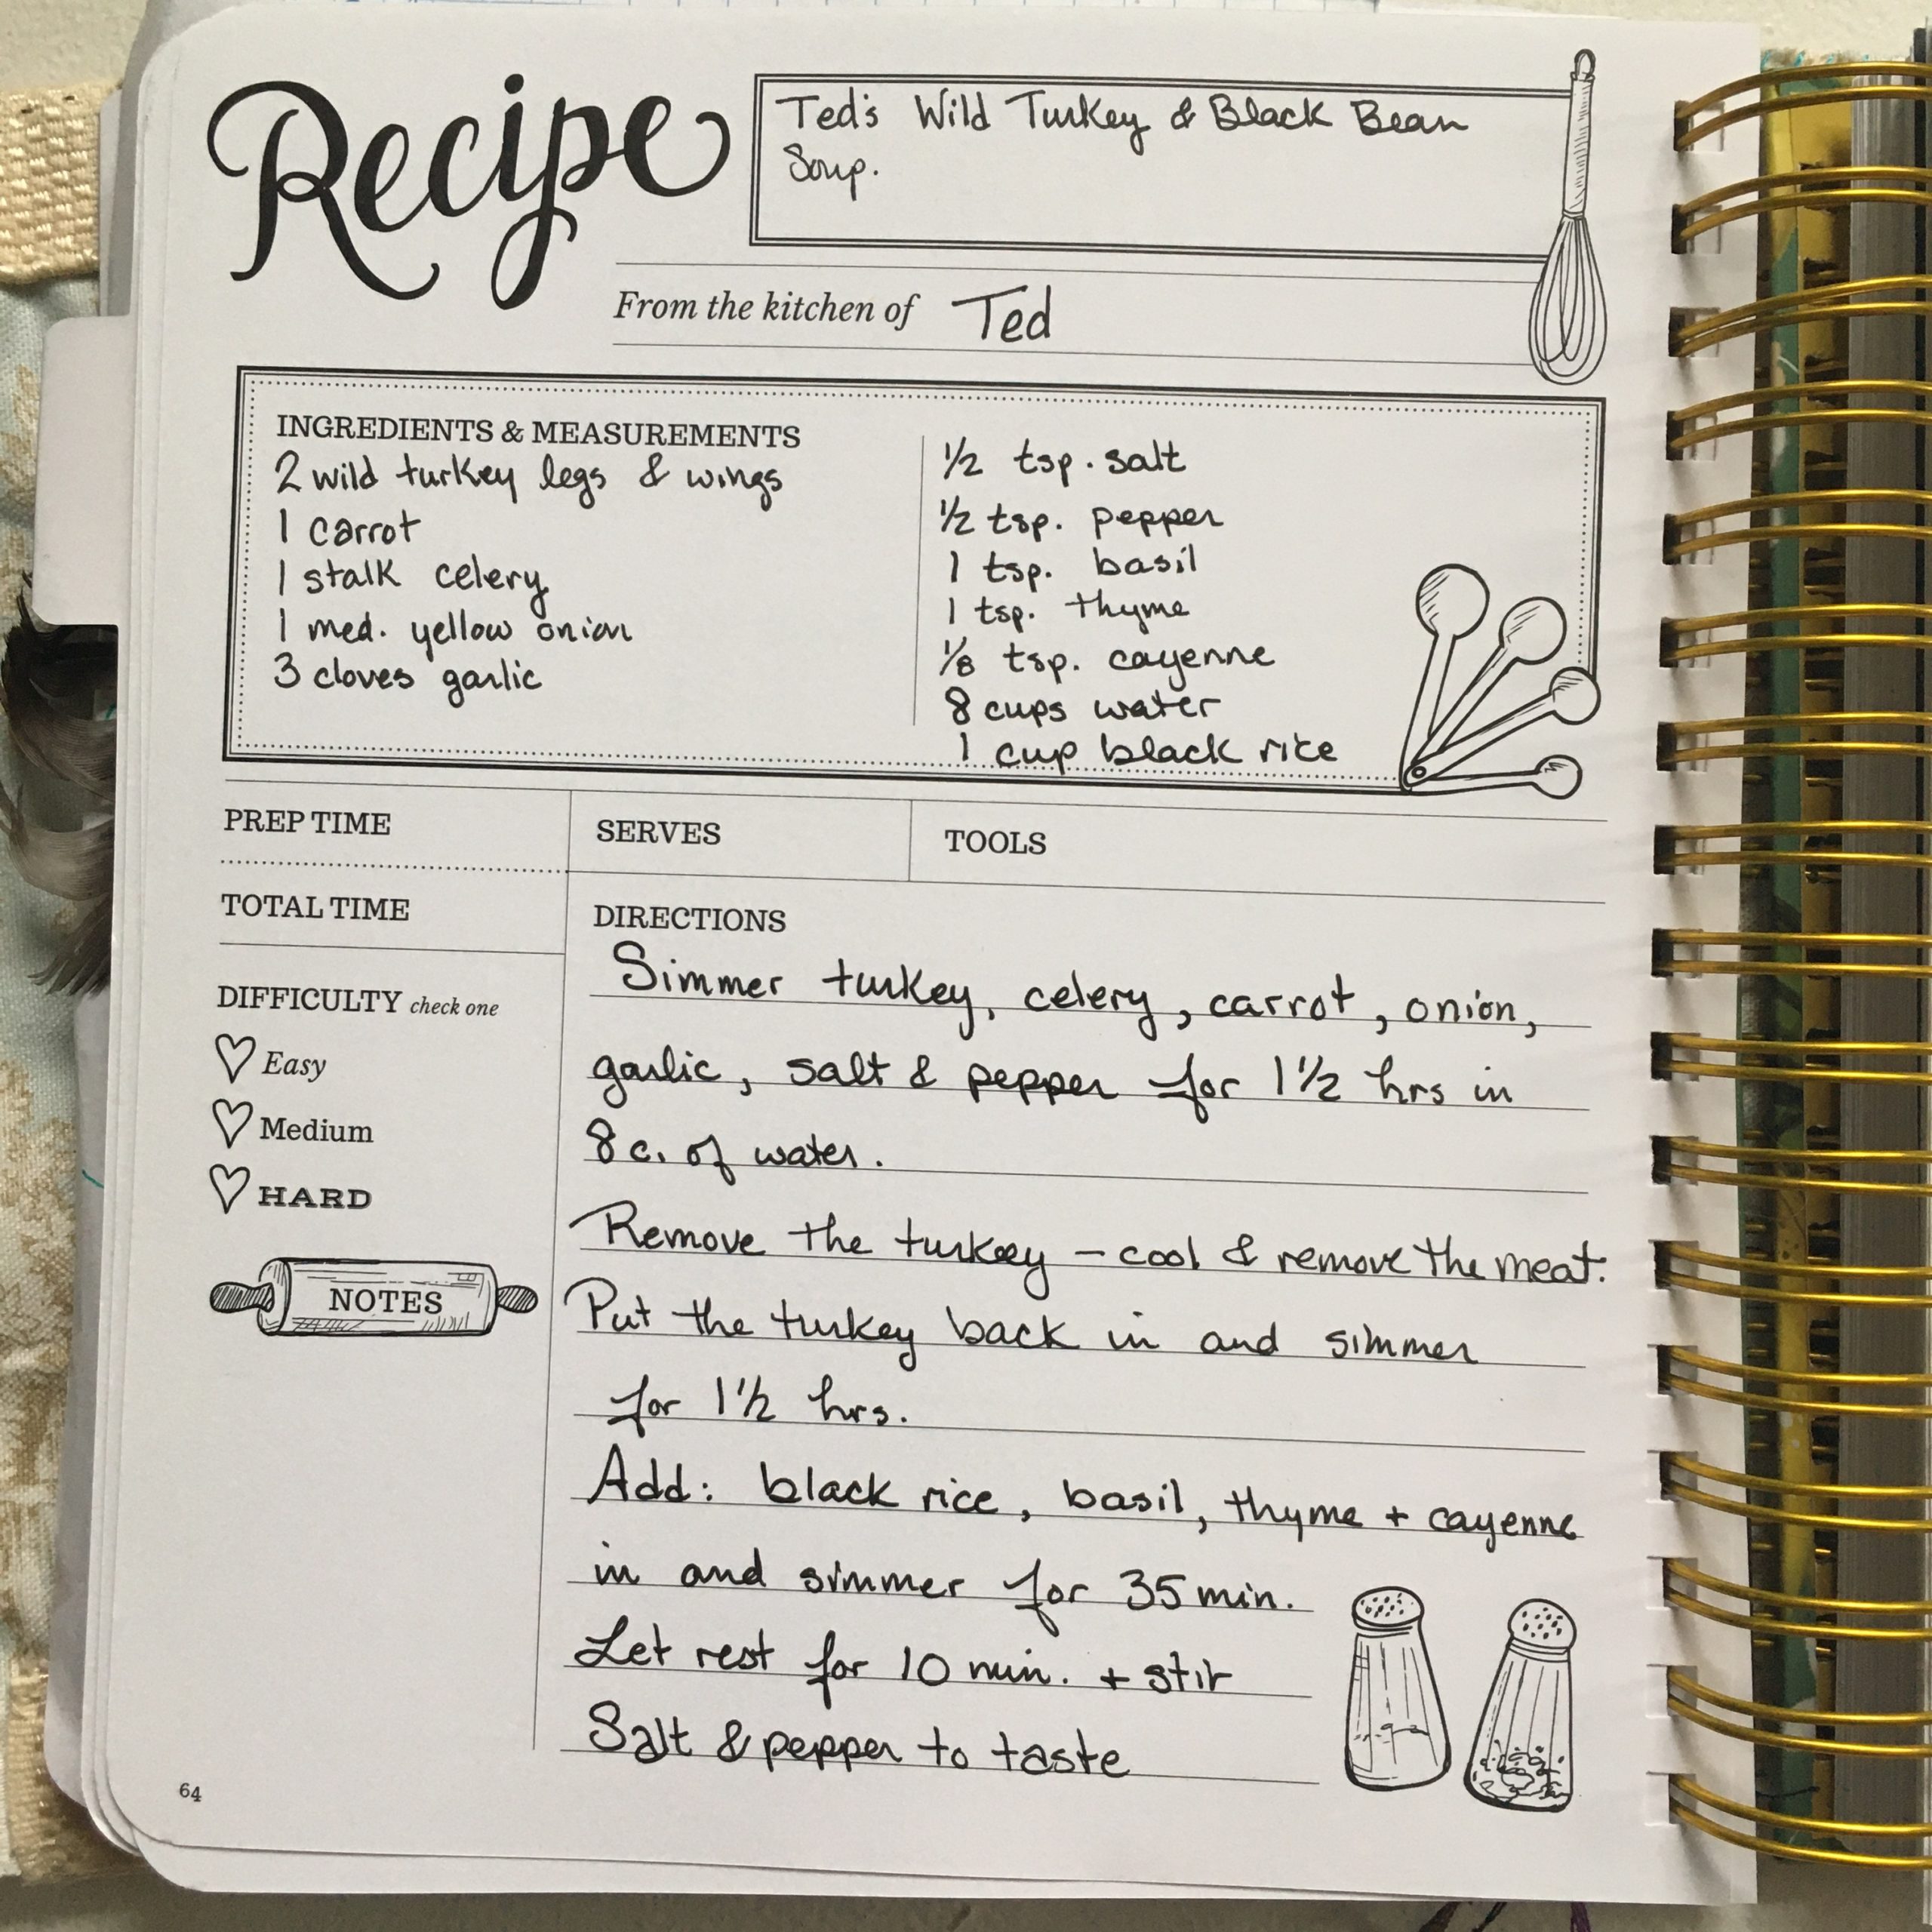 Recipe
Ted's Wild Turkey & Black Bean
Soup.
From the kitchen of Ted
INGREDIENTS & MEASUREMENTS
2 wild turkey legs & wings
1 carrot
1 stalk celery
1 med. yellow onion
3 cloves garlic
1/2 tsp. salt
1/2 tsp. pepper
1 tsp. basil
1 tsp. thyme
1/8 tsp. cayenne
8 cups water
1 cup black rice
PREP TIME
SERVES
TOOLS
TOTAL TIME
DIFFICULTY check one
Easy
Medium
HARD
NOTES
DIRECTIONS
Simmer turkey, celery, carrot, onion,
garlic, salt & pepper for 1 1/2 hrs in
8 c. of water.
Remove the turkey - cool & remove the meat.
Put the turkey back in and simmer
for 1 1/2 hrs.
Add: black rice, basil, thyme + cayenne
in and simmer for 35 min.
Let rest for 10 min. + stir
Salt & pepper to taste
64